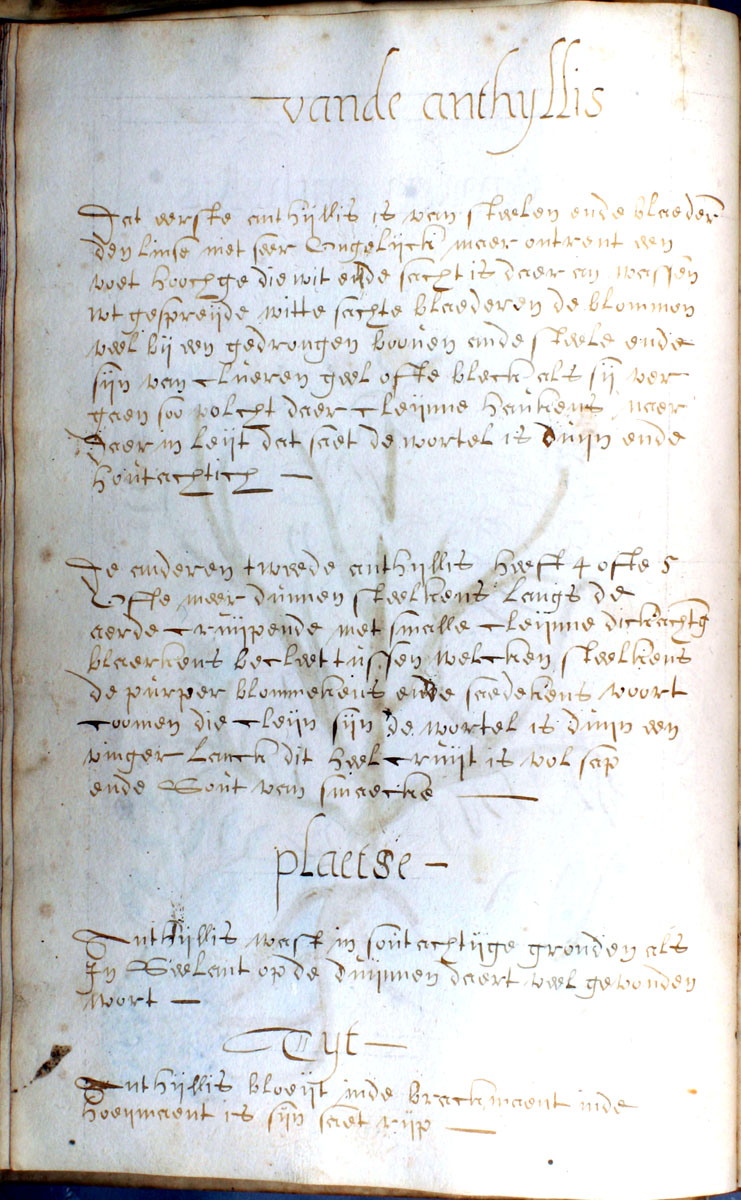 vande anthyllis
Dat eerste anthyllis is van steelen ende blaeder
den linse met seer ongelijck maer ontrent een
voet hoochge die wit ende sacht is daer an wassen
wt gespreijde witte sachte blaederen de blommen
veel bij een gedrongen booven ande steele ende
sijn van clueren geel ofte bleck als sij ver
gaen soo volcht daer cleijnne haukens naer
daer in leijt dat saet de wortel is duijn ende
houtachtich —
De anderen tweede anthyllis heeft 4 ofte 5
Ofte meer dunnen steelkens langs de
aerde cruijpende met smalle cleijnne dickachtg
blaerkens becleet tussen welcken steelkens
de purper blommekens ende saedekens voort
coomen die cleijn sijn de wortel is duijn een
vinger lanck dit heel cruijt is vol sap
ende Sout van smaecke —
plaetse —
Anthyllis wast in soutachtijge gronden als
In Seelant op de duijnen daert veel gevonden
wort —
Tyt —
Anthyllis bloeijt inde brackmaent inde
hoeijmaent is sijn saet rijp —